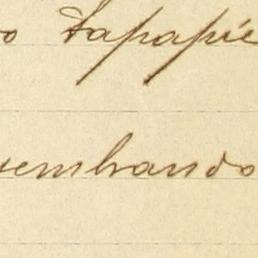 o tapapié
sembrando